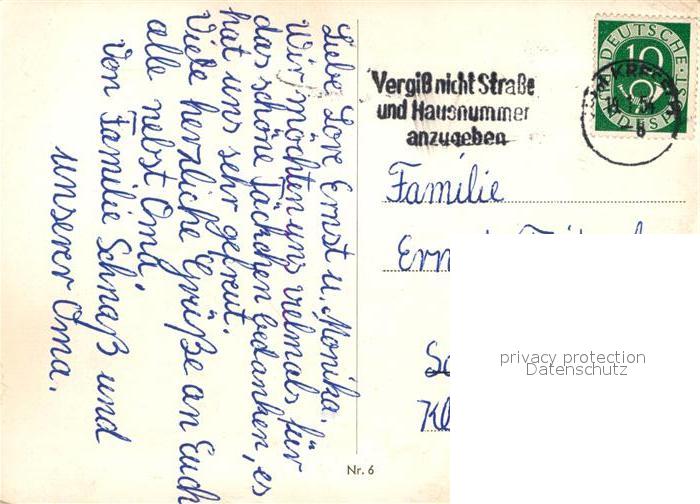 Liebe Lore Ernst u. Monika.
Wir möchten uns vielmals für
das schöne Jäckchen bedanken, es
hat uns sehr gefreut.
Viele herzliche Grüße an Euch
alle nebst Oma,
von Familie Schnaß und
unserer Oma.
Vergiß nicht Straße
und Hausnummer
anzugeben
DEUTSCHE
10
Familie
Nr. 6
privacy protection
Datenschutz